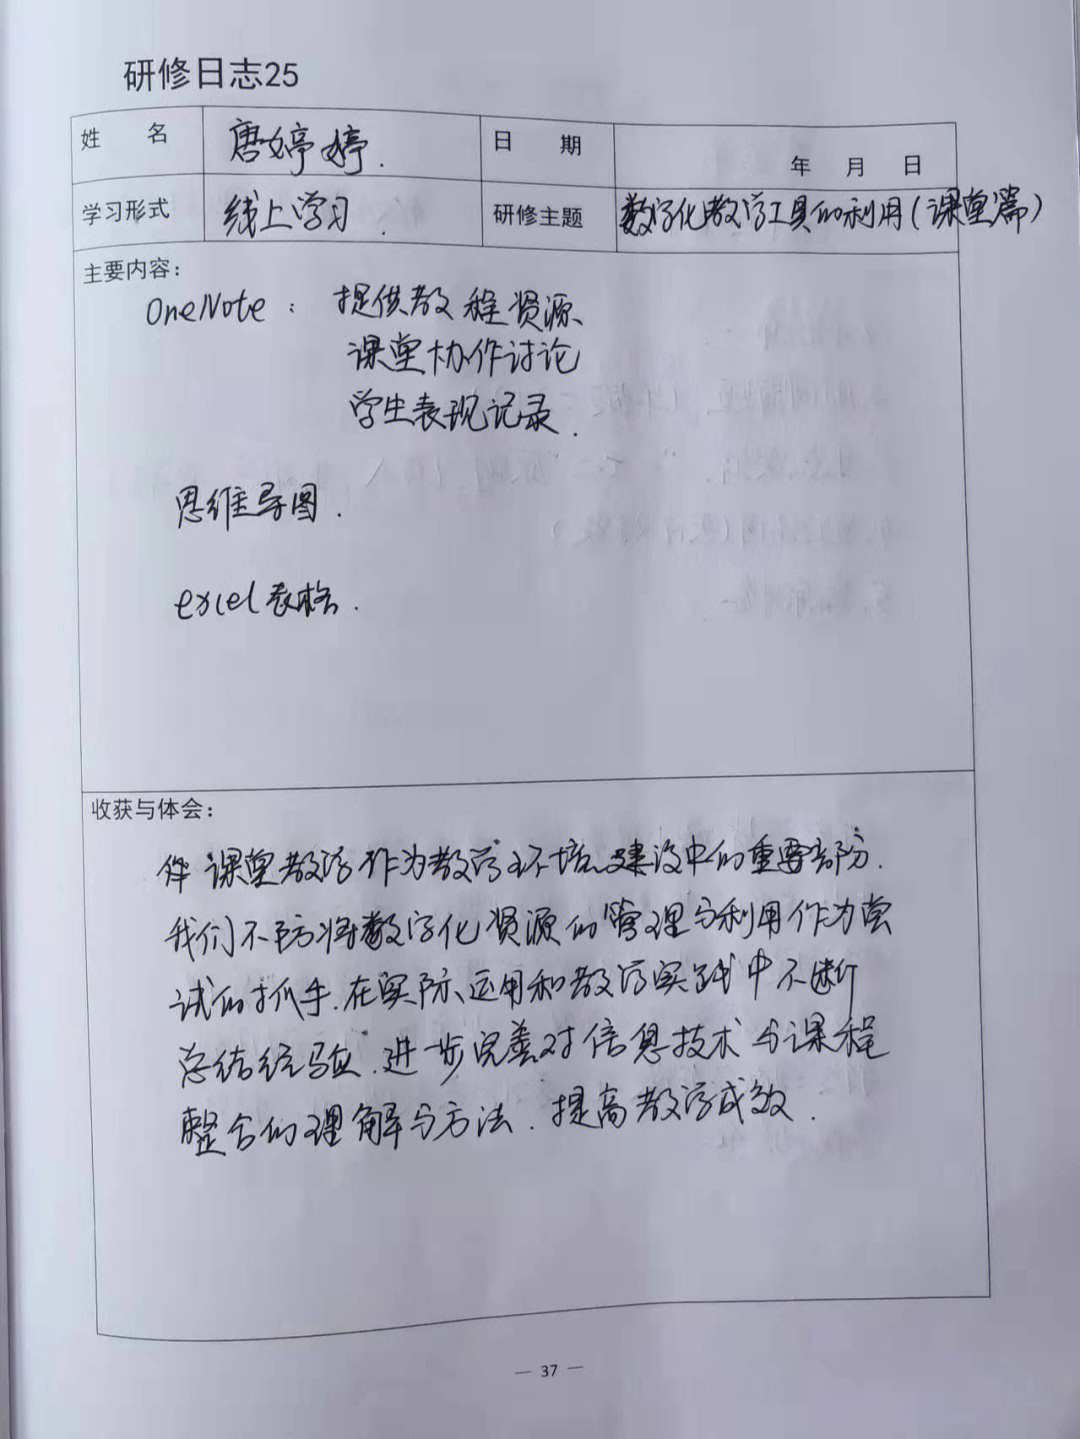 研修日志25
姓 名 唐婷婷. 日 期 年 月 日
学习形式 线上学习. 研修主题 数字化教学工具的利用(课堂篇)
主要内容:
OneNote: 提供教程资源、
课堂协作讨论
学生表现记录.
思维导图.
excel表格.
收获与体会:
课堂教学作为教学环境建设中的重要部分.
我们不防将数字化资源的管理与利用作为尝
试的抓手.在实际运用和教学实践中不断
总结经验.进步完善对信息技术与课程
整合的理解与方法.提高教学成效.
— 37 —